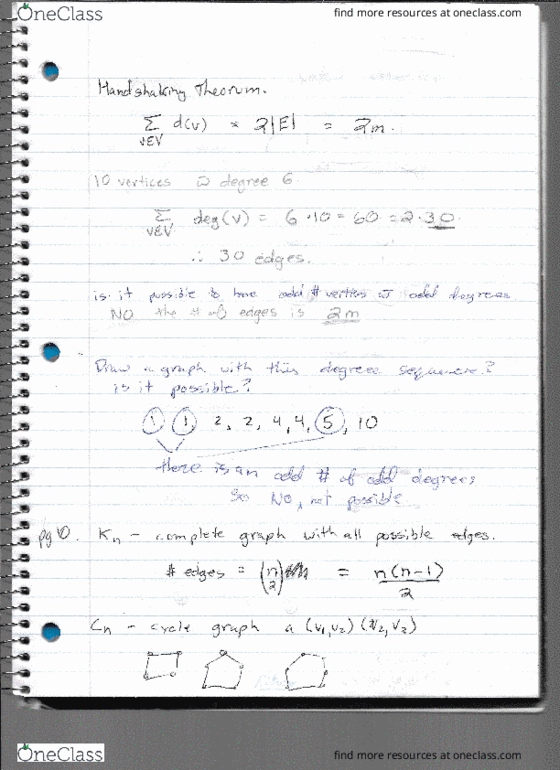 OneClass
find more resources at oneclass.com
Handshaking Theorum.
Σ d(v) = 2|E| = 2m.
v∈V
10 vertices w̅ degree 6
Σ deg(v) = 6·10 = 60 = 2·30.
v∈V
∴ 30 edges.
is it possible to have odd # vertices w̅ odd degrees
NO the # of edges is 2m
Draw a graph with this degree sequence?
is it possible?
1, 1, 2, 2, 4, 4, 5, 10
there is an odd # of odd degrees
So NO, not possible
pg 10. Kn - complete graph with all possible edges.
# edges = (n 2) = n(n-1)/2
Cn - cycle graph a (v1, v2) (v2, v3)
OneClass
find more resources at oneclass.com